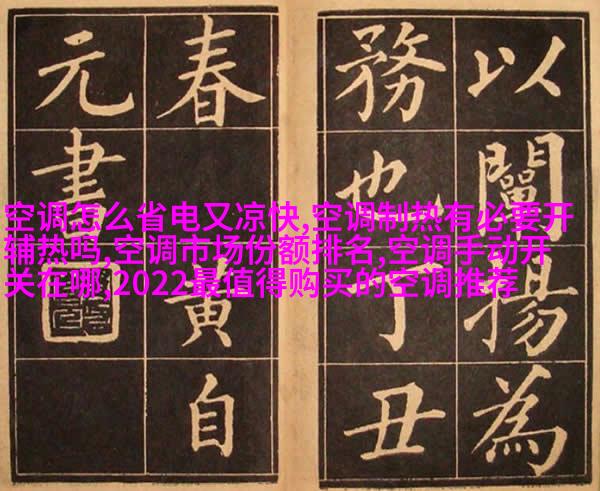 以闡揚為
務也丁丑
春黄自
元書
空调怎么省电又凉快,空调制热有必要开
辅热吗,空调市场份额排名,空调手动开
关在哪,2022最值得购买的空调推荐